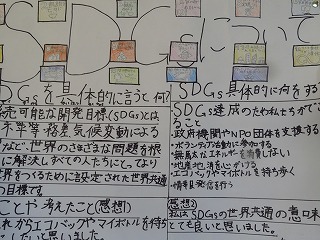 SDGsについて
SDGsを具体的に言うと何
続可能な開発目標(SDGs)とは
不平等・格差、気候変動による
など、世界のさまざまな問題を根
に解決しすべての人たちにとってより
世界をつくるために設定された世界共通
の目標です。
ことや考えたこと(感想1)
れからエコバックやマイボトルを持ち
したいと思いました。
SDGs具体的に何をする
SDGs達成のため私たちができ
ること
・政府機関やNPO団体を支援する
・ボランティア活動に参加する
・無駄なエネルギーを消費しない
・地産地消を心がける
・エコバックやマイボトルを持ち歩く
・情報発信を行う
(感想2)
私はSDGsの世界共通の意味
とても良いと思いました。